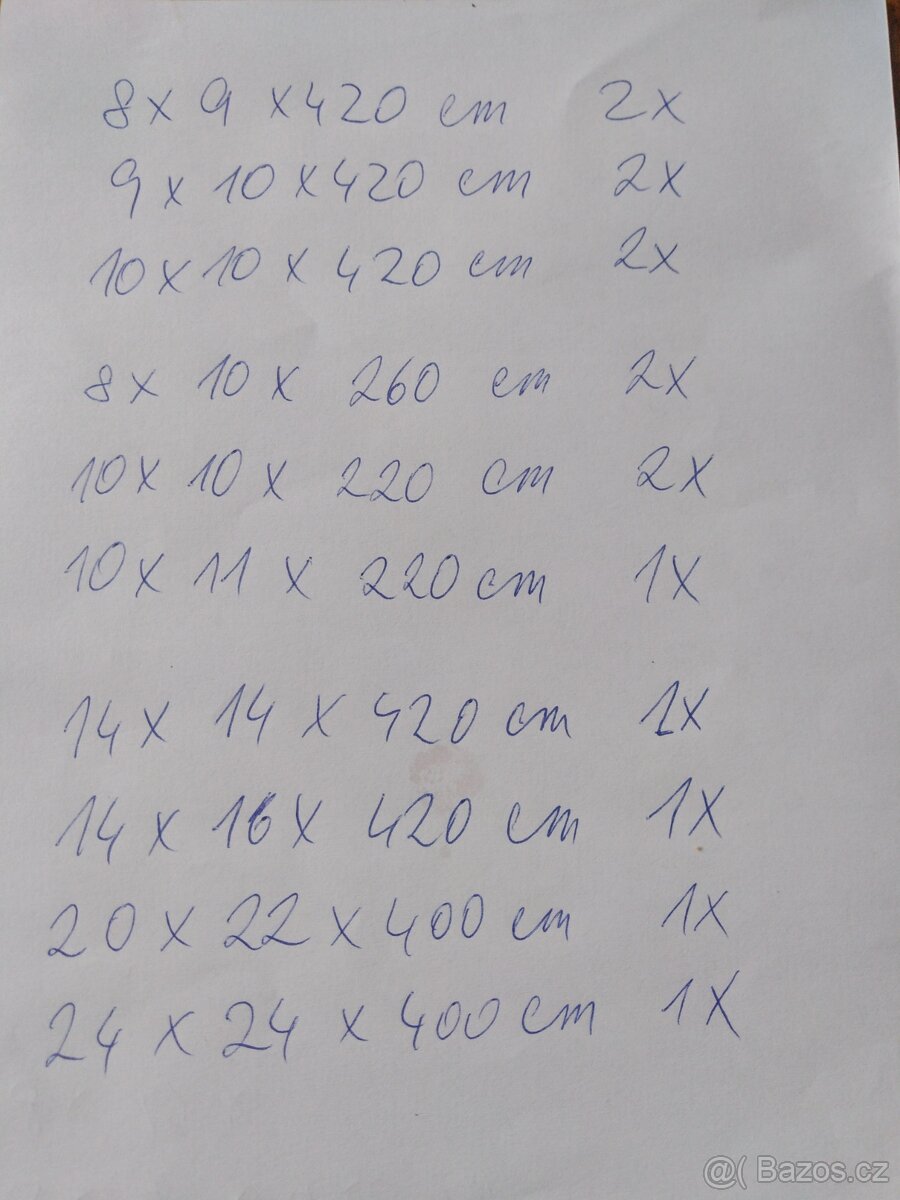 8x 9 x420 cm 2x
9x 10x420 cm 2x
10x 10x 420 cm 2x
8x 10x 260 cm 2x
10x 10x 220 cm 2x
10x 11x 220cm 1x
14x 14x 420cm 1x
14x 16x 420cm 1x
20x 22x400cm 1x
24x 24x400cm 1x
@( Bazos.cz